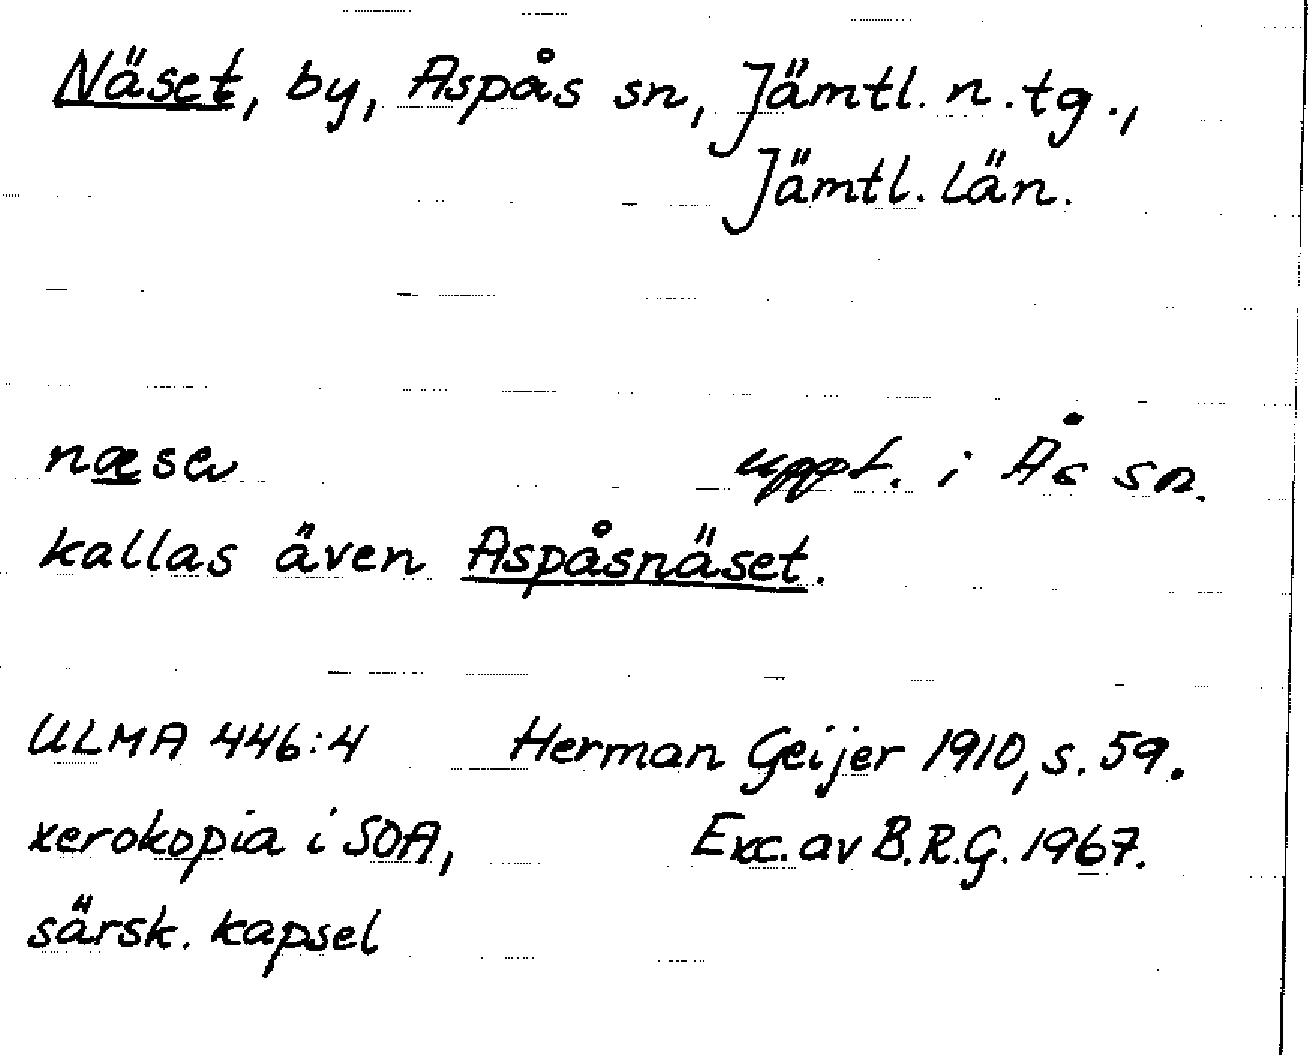 Näset, by, Aspås sn, Jämtl. n. tg.,
Jämtl. län.
næsa uppt. i Ås sn.
kallas även Aspåsnäset.
ULMA 446:4 Herman Geijer 1910, s. 59.
xerokopia i SOA, Exc. av B.R.G. 1967.
särsk. kapsel